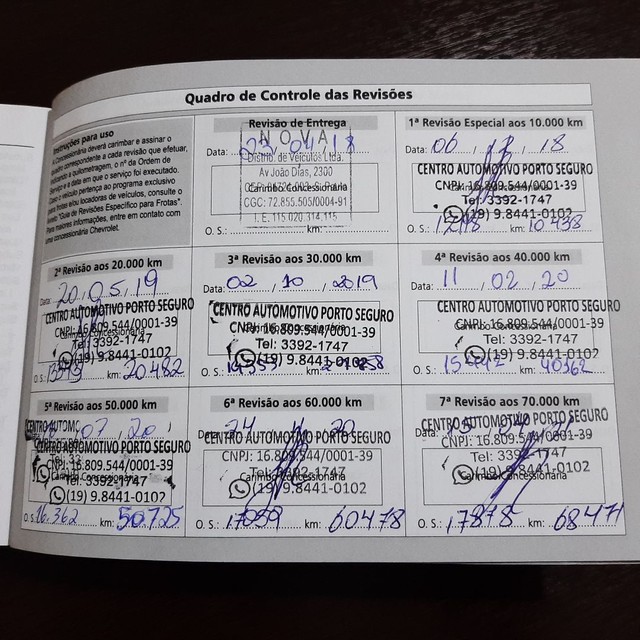 Quadro de Controle das Revisões
Instruções para uso
A Concessionária deverá carimbar e assinar o
correspondente a cada revisão que efetuar,
a quilometragem, o nº da Ordem de
Serviço e a data em que o serviço foi executado.
Caso o veículo pertença ao programa exclusivo
para frotas e/ou locadoras de veículos, consulte o
"Guia de Revisões Específico para Frotas".
Para maiores informações, entre em contato com
uma concessionária Chevrolet.
Revisão de Entrega
NOVA
Data: 03 04 18
Distrib. de Veículos Ltda.
Av João Dias, 2300
Carimbo Concessionária
CGC: 72.855.505/0004-91
I. E. 115 020 314 115
O. S.: km:
1ª Revisão Especial aos 10.000 km
Data: 06 12 18
CENTRO AUTOMOTIVO PORTO SEGURO
CNPJ: 16.809.544/0001-39
Tel: 3392-1747
(19) 9.8441-0102
O. S.: km: 10438
2ª Revisão aos 20.000 km
Data: 20 05 19
CENTRO AUTOMOTIVO PORTO SEGURO
CNPJ: 16.809.544/0001-39
Carimbo Concessionária
Tel: 3392-1747
(19) 9.8441-0102
O. S.: km: 20.482
3ª Revisão aos 30.000 km
Data: 02 10 2019
CENTRO AUTOMOTIVO PORTO SEGURO
CNPJ: 16.809.544/0001-39
Tel: 3392-1747
(19) 9.8441-0102
O. S.:
4ª Revisão aos 40.000 km
Data: 11 02 20
CENTRO AUTOMOTIVO PORTO SEGURO
CNPJ: 16.809.544/0001-39
Carimbo Concessionária
Tel: 3392-1747
(19) 9.8441-0102
O. S.: km: 40162
5ª Revisão aos 50.000 km
07 20
CENTRO AUTOMOTIVO PORTO SEGURO
CNPJ: 16.809.544/0001-39
Tel: 3392-1747
(19) 9.8441-0102
O. S.: 16.362 km: 50.725
6ª Revisão aos 60.000 km
Data: 20
CENTRO AUTOMOTIVO PORTO SEGURO
CNPJ: 16.809.544/0001-39
Tel: 3392-1747
Carimbo Concessionária
(19) 9.8441-0102
O. S.: 17059 km: 60478
7ª Revisão aos 70.000 km
Data:
CENTRO AUTOMOTIVO PORTO SEGURO
CNPJ: 16.809.544/0001-39
Tel: 3392-1747
Carimbo Concessionária
(19) 9.8441-0102
O. S.: 17878 km: 68471